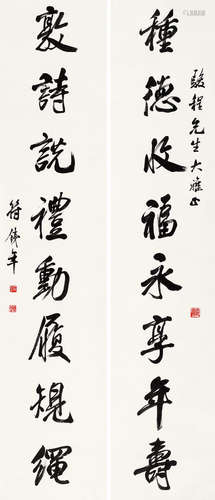 種德收福永享年壽
駿程先生大雅正
敦詩說禮動履規繩
符鑄年